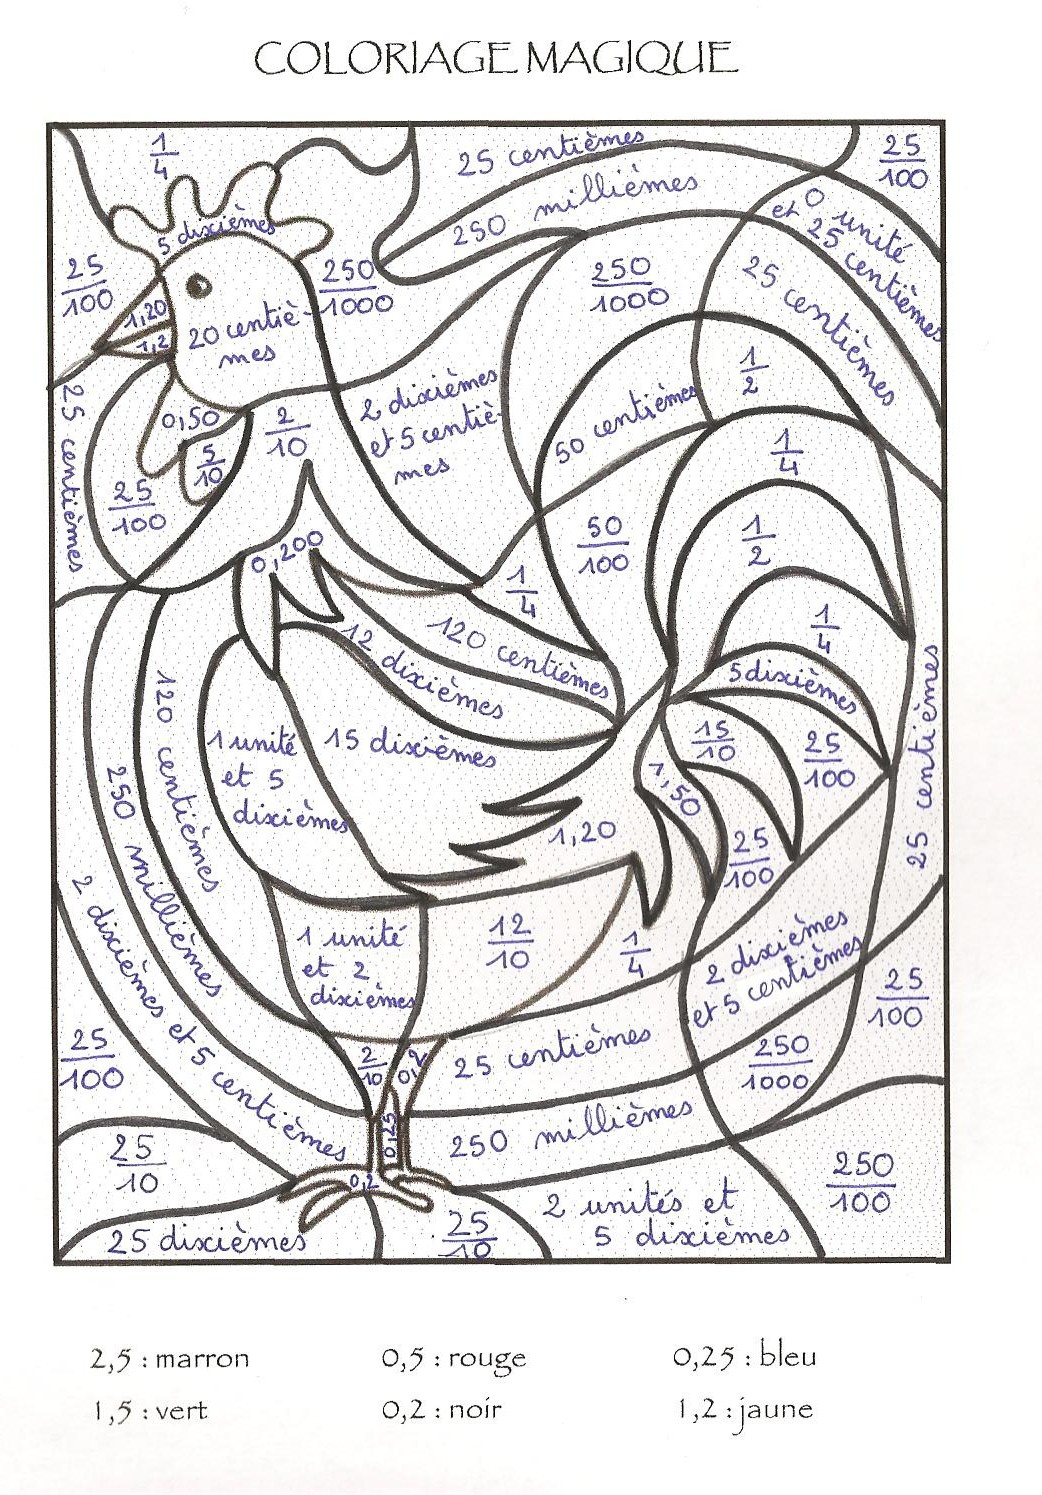 COLORIAGE MAGIQUE
1/4
25 centièmes
25/100
250 millièmes
0 unité
et 25
centièmes
5 dixièmes
25/100
250/1000
250/1000
25 centièmes
1,20
1,2
20 centiè-
mes
1/2
2 dixièmes
et 5 centiè-
mes
50 centièmes
25 centièmes
0,50
2/10
5/10
1/4
25/100
50/100
1/2
0,200
1/4
1/4
120 centièmes
12 dixièmes
5 dixièmes
25 centièmes
120 centièmes
1 unité
et 5
dixièmes
15 dixièmes
15/10
25/100
250 millièmes
1,50
1,20
25/100
2 dixièmes et 5 centièmes
1 unité
et 2
dixièmes
12/10
1/4
2 dixièmes
et 5 centièmes
25/100
25/100
2/10
0,2
25 centièmes
250/1000
0,25
250 millièmes
25/10
0,2
250/100
2 unités et
5 dixièmes
25 dixièmes
25/10
2,5 : marron
0,5 : rouge
0,25 : bleu
1,5 : vert
0,2 : noir
1,2 : jaune